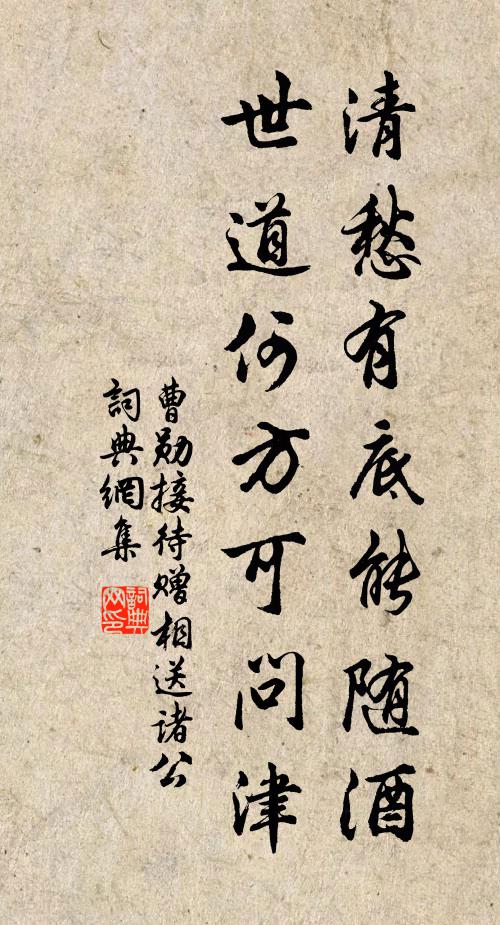 清愁有底能随酒
世道何方可問津
曹勛接待贈相送諸公
詞典網集
詞典
网印